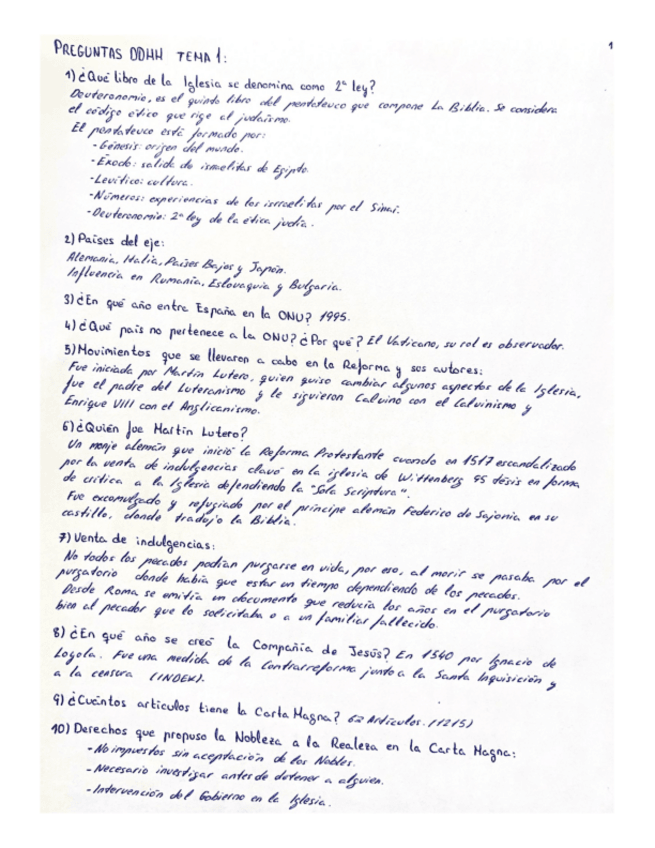 PREGUNTAS DDHH TEMA 1:
1
1) ¿Qué libro de la Iglesia se denomina como 2ª ley?
Deuteronomio, es el quinto libro del pentateuco que compone La Biblia. Se considera
el código ético que rige al judaísmo.
El pentateuco está formado por:
- Génesis: origen del mundo.
- Éxodo: salida de israelitas de Egipto.
- Levítico: cultura.
- Números: experiencias de los israelitas por el Sinaí.
- Deuteronomio: 2ª ley de la ética judía.
2) Países del eje:
Alemania, Italia, Países Bajos y Japón.
Influencia en Rumanía, Eslovaquia y Bulgaria.
3) ¿En qué año entre España en la ONU? 1995.
4) ¿Qué país no pertenece a la ONU? ¿Por qué? El Vaticano, su rol es observador.
5) Movimientos que se llevaron a cabo en la Reforma y sus autores:
Fue iniciada por Martín Lutero, quien quiso cambiar algunos aspectos de la Iglesia,
fue el padre del Luteranismo y le siguieron Calvino con el Calvinismo y
Enrique VIII con el Anglicanismo.
6) ¿Quién fue Martín Lutero?
Un monje alemán que inició la Reforma Protestante cuando en 1517 escandalizado
por la venta de indulgencias clavó en la iglesia de Wittenberg 95 tésis en forma
de crítica a la Iglesia defendiendo la "Sola Scriptura".
Fue excomulgado y refugiado por el príncipe alemán Federico de Sajonia en su
castillo, donde tradujo la Biblia.
7) Venta de indulgencias:
No todos los pecados podían purgarse en vida, por eso, al morir se pasaba por el
purgatorio donde había que estar un tiempo dependiendo de los pecados.
Desde Roma se emitía un documento que reducía los años en el purgatorio
bien al pecador que lo solicitaba o a un familiar fallecido.
8) ¿En qué año se creó la Compañía de Jesús? En 1540 por Ignacio de
Loyola. Fue una medida de la Contrarreforma junto a la Santa Inquisición y
a la censura (INDEX).
9) ¿Cuántos artículos tiene la Carta Magna? 62 Artículos. (1215)
10) Derechos que propuso la Nobleza a la Realeza en la Carta Magna:
- No impuestos sin aceptación de los Nobles.
- Necesario investigar antes de detener a alguien.
- Intervención del Gobierno en la Iglesia.